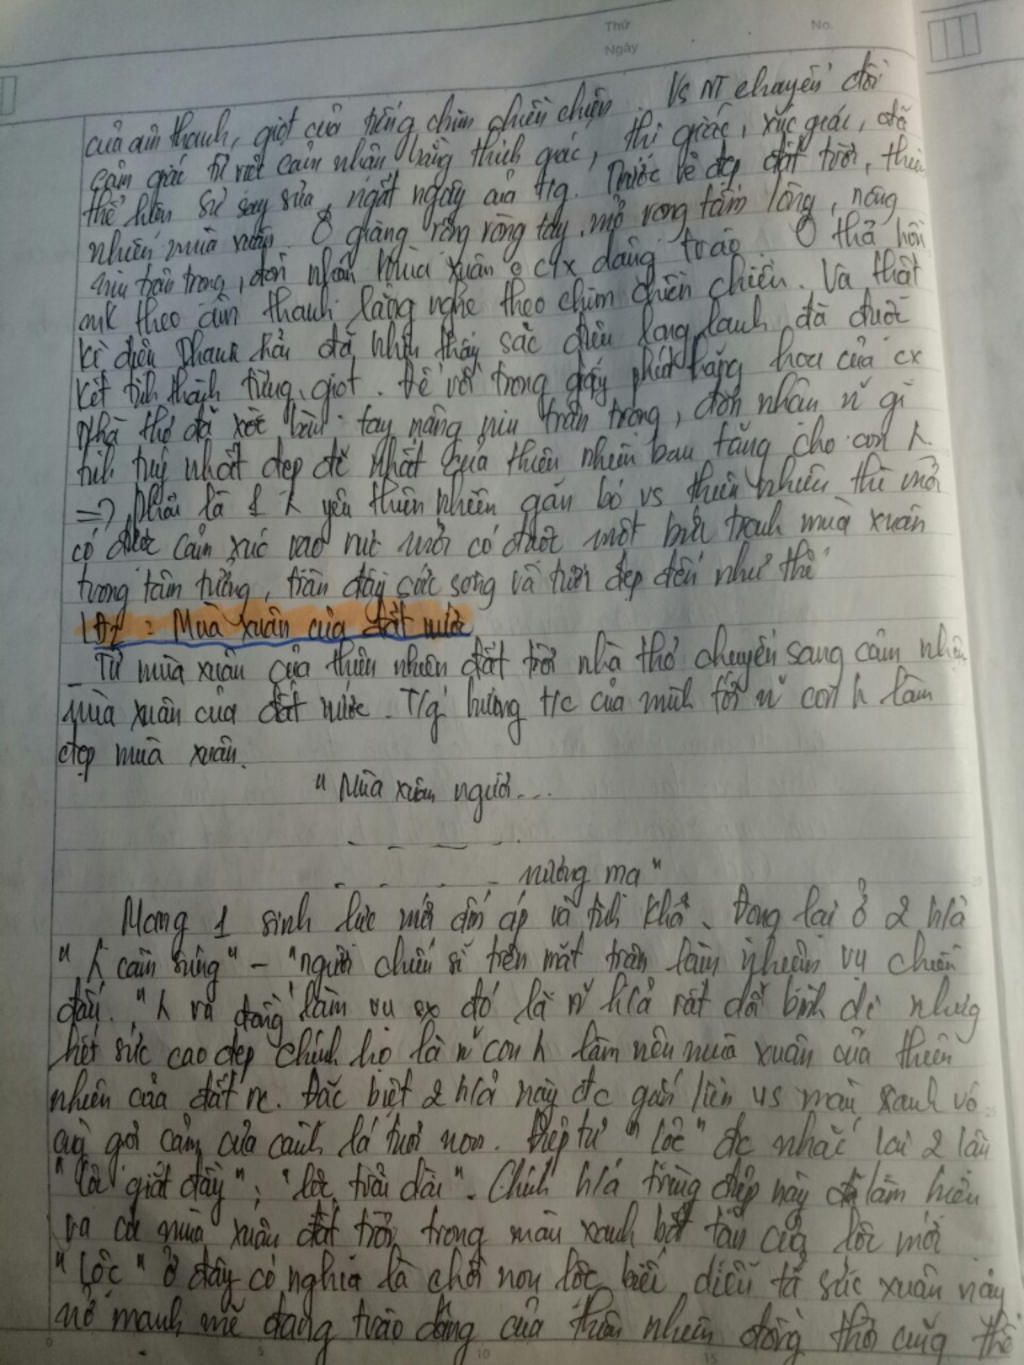 Thứ No.
Ngày
của âm thanh, giọt của tiếng chim chiền chiện. Vs NT chuyển đổi
cảm giác từ việc cảm nhận bằng thính giác, thị giác, xúc giác, đã
thể hiện sự say sưa, ngất ngây của t/g. Trước vẻ đẹp đất trời, thiên
nhiên mùa xuân. Ô giang rộng vòng tay, mở rộng tấm lòng, nâng
niu trân trọng, đón nhận mùa xuân c/x dâng trào. Ô thả hồn
mk theo âm thanh lắng nghe theo chim chiền chiện. Và thật
kì diệu Thanh Hải đã nhìn thấy sắc điệu long lanh đã được
kết tinh thành từng giọt. Để với trong giây phút thăng hoa của cx
nhà thơ đã xòe bàn tay nâng niu trân trọng, đón nhận n~ gì
tinh túy nhất đẹp đẽ nhất của thiên nhiên ban tặng cho con
=> Phải là 1 yêu thiên nhiên gắn bó vs thiên nhiên thì mới
có được cảm xúc mới có được một bức tranh mùa xuân
trong tâm tưởng, tràn đầy sức sống và tươi đẹp đến như thế
Mùa xuân của đất nước
_ Từ mùa xuân của thiên nhiên đất trời nhà thơ chuyển sang cảm nhận
mùa xuân của đất nước. T/g hướng t/c của mình tới n~ con làm
đẹp mùa xuân.
"Mùa xuân người...
- - - - nương mạ"
Mang 1 sinh lực mới ấm áp và Đọng lại ở 2 h/ả
" cầm súng" – "người chiến sĩ trên mặt trận làm nhiệm vụ chiến
đấu. " ra đồng đó là n~ h/ả rất đỗi bình dị nhưng
hết sức cao đẹp chính họ là n~ con làm nên mùa xuân của thiên
nhiên của đất nc. Đặc biệt 2 h/ả này đc gắn liền vs màu xanh vô
cùng gợi cảm của cành lá tươi non. Điệp từ "lộc" đc nhắc lại 2 lần
"lộc giắt đầy"; "lộc trải dài". Chính h/ả trùng điệp này đã làm hiện
ra cả mùa xuân đất trời trong màu xanh bất tận của lộc mới
"Lộc" ở đây có nghĩa là chồi non lộc biếc diễn tả sức xuân nảy
nở mạnh mẽ đang trào dâng của thiên nhiên đồng thời cũng thể